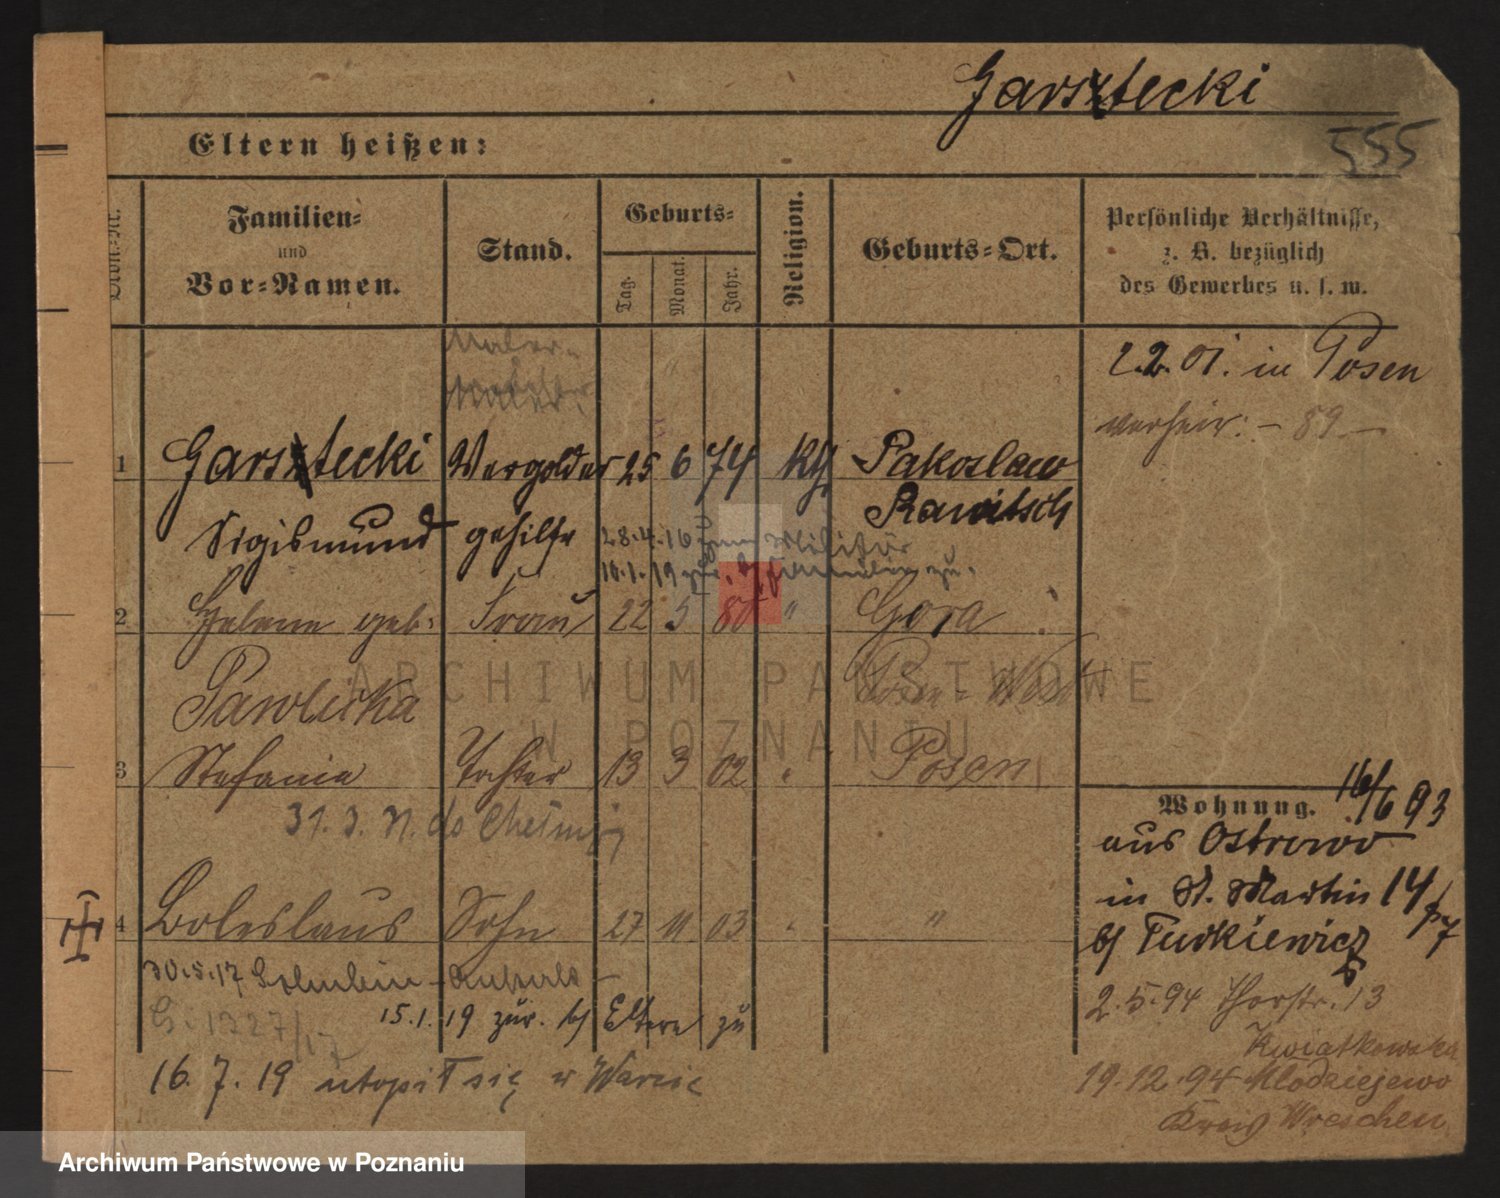 Garsztecki
555
Eltern heißen:
Ordn.-Nr.
Familien-
und
Vor-Namen.
Stand.
Geburts-
Tag.
Monat.
Jahr.
Religion.
Geburts-Ort.
Persönliche Verhältnisse,
z. B. bezüglich
des Gewerbes u. s. w.
Maler-
2.2.01. in Posen
verheir. - 89 -
1 Garsztecki Vergolder 25 6 74 kth Pakoslaw
Rawitsch
Sigismund gehilfe
28.4.16 zum Militär
10.1.19 zur. b/ Familie zu.
2 Helene geb. Frau 22 5 80 " Gora
Pawlicka Posen-West
3 Stefania Tochter 13 3 02 " Posen
31. 3. 31. do
4 Boleslaus Sohn 27 11 03 " "
30.5.17
15.1.19 zur. b/ Eltern zu
16. 7. 19 utopił się w Warcie
Wohnung. 16/6 93
aus Ostrowo
in St. Martin 14
b/ Turkiewicz
2.5.94 Thorstr. 13
Kwiatkowska
19.12.94 Mlodziejewo
Kreis Wreschen
ARCHIWUM PAŃSTWOWE
W POZNANIU
Archiwum Państwowe w Poznaniu